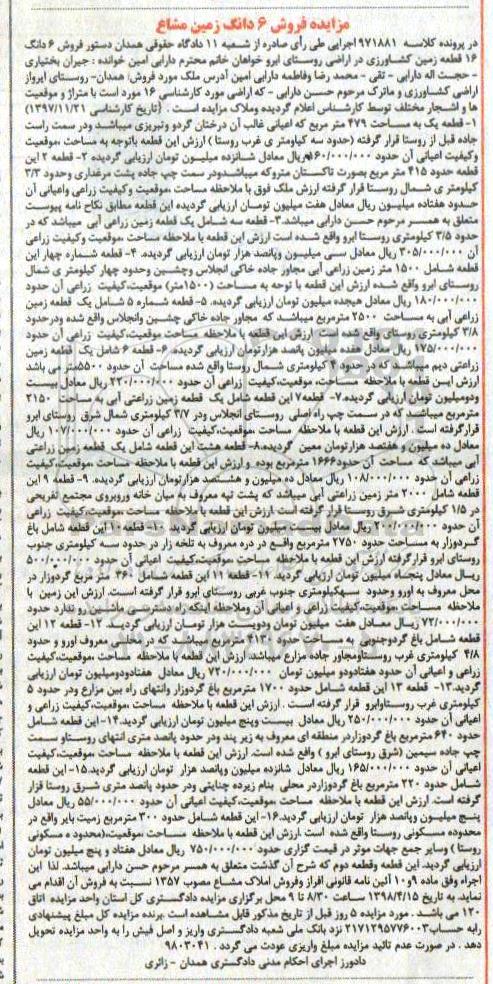 مزایده فروش ۶ دانگ زمین مشاع
در پرونده کلاسه ۹۷۱۸۸۱ اجرایی طی رأی صادره از شعبه ۱۱ دادگاه حقوقی همدان دستور فروش ۶ دانگ
۱۶ قطعه زمین کشاورزی در اراضی روستای ابرو خواهان خانم محترم دارابی امین خوانده : جیران بختیاری
- حجت اله دارابی - تقی - محمد رضا وفاطمه دارابی امین آدرس ملک مورد فروش: همدان- روستای ابرواز
اراضی کشاورزی و ماترک مرحوم حسن دارابی - که اراضی مورد کارشناسی ۱۶ مورد است با متراژ و موقعیت
ها و اشجار مختلف توسط کارشناس اعلام گردیده وملاک مزایده است . (تاریخ کارشناسی ۱۳۹۷/۱۱/۲۱)
۱- قطعه یک به مساحت ۴۷۹ متر مربع که اعیانی غالب آن درختان گردو وتبریزی میباشد ودر سمت راست
جاده قبل از روستا قرار گرفته (حدود سه کیلومتر ی غرب روستا ) ارزش این قطعه باتوجه به مساحت ،موقعیت
وکیفیت اعیانی آن حدود ۱۶۰/۰۰۰/۰۰۰ریال معادل شانزده میلیون تومان ارزیابی گردیده ۲- قطعه ۲ این
قطعه حدود ۴۱۵ متر مربع بصورت تاکستان متروکه میباشدودر سمت چپ جاده پشت مرغداری وحدود ۳/۳
کیلومتر ی شمال روستا قرار گرفته ارزش ملک فوق با ملاحظه مساحت ،موقعیت و کیفیت زراعی واعیانی آن
حدود هفتاده میلیون ریال معادل هفت میلیون تومان ارزیابی گردیده این قطعه مطابق نکاح نامه پیوست
متعلق به همسر مرحوم حسن دارابی میباشد.۳- قطعه سه شامل یک قطعه زمین زراعی آبی میباشد که در
حدود ۳/۵ کیلومتری روستا ابرو واقع شده است ارزش این قطعه با ملاحظه مساحت ،موقعیت وکیفیت زراعی
آن ۳۰۵/۰۰۰/۰۰۰ ریال معادل سی میلیون وپانصد هزار تومان ارزیابی گردیده. ۴- قطعه شماره چهار این
قطعه شامل ۱۵۰۰ متر زمین زراعی آبی مجاور جاده خاکی انجلاس وچشین وحدود چهار کیلومتر ی شمال
روستای ابرو واقع شده ارزش این قطعه با توجه به مساحت (۱۵۰۰متر) موقعیت،کیفیت زراعی آن حدود
۱۸۰/۰۰۰/۰۰۰ ریال معادل هیجده میلیون تومان ارزیابی گردیده. ۵- قطعه شماره ۵ شامل یک قطعه زمین
زراعی آبی به مساحت ۲۵۰۰ مترمربع میباشد که مجاور جاده خاکی چشین وانجلاس واقع شده ودرحدود
۳/۸ کیلومتری روستای واقع شده است. ارزش این قطعه با ملاحظه مساحت موقعیت،کیفیت زراعی آن حدود
۱۷۵/۰۰۰/۰۰۰ ریال معادل هفده میلیون پانصد هزارتومان ارزیابی گردیده. ۶- قطعه ۶ شامل یک قطعه زمین
زراعتی دیم میباشد که در حدود ۴ کیلومتری شمال روستا واقع شده مساحت آن حدود ۵۵۰۰متر می باشد
ارزش این قطعه با ملاحظه مساحت، موقعیت،کیفیت زراعی آن حدود ۲۲۰/۰۰۰/۰۰۰ ریال معادل بیست
ودومیلیون تومان ارزیابی گردیده.۷- قطعه۷ این قطعه شامل یک قطعه زمین زراعتی آبی به مساحت ۲۱۵۰
مترمربع میباشد که در سمت چپ راه اصلی روستای انجلاس ودر ۳/۷ کیلومتری شمال شرق روستای ابرو
قرارگرفته است . ارزش این قطعه با ملاحظه مساحت ،موقعیت،کیفیت زراعی آن حدود ۱۰۷/۰۰۰/۰۰۰ ریال
معادل ده میلیون و هفتصد هزارتومان معین گردیده.۸- قطعه هشت این قطعه شامل یک قطعه زمین زراعتی
آبی میباشد که مساحت آن حدود۱۶۶۶ مترمربع بوده و ارزش این قطعه با ملاحظه مساحت ،موقعیت،کیفیت
زراعی آن حدود ۱۰۸/۰۰۰/۰۰۰ ریال معادل ده میلیون و هشتصد هزارتومان ارزیابی گردیده. ۹- قطعه ۹ این
قطعه شامل ۲۰۰۰ متر زمین زراعتی آبی میباشد که پشت تپه معروف به میان خانه وروبروی مجتمع تفریحی
در ۱/۵ کیلومتری شرق روستا قرار گرفته است .ارزش این قطعه با ملاحظه مساحت ،موقعیت،کیفیت زراعی
آن حدود ۲۰۰/۰۰۰/۰۰۰ ریال معادل بیست میلیون تومان ارزیابی گردید .۱۰- قطعه ۱۰ این قطعه شامل باغ
گردوزار به مساحت حدود ۲۷۵۰ مترمربع واقع در دره معروف به تلخه زار در حدود سه کیلومتری جنوب
روستای ابرو قرارگرفته ارزش این قطعه با ملاحظه مساحت ،موقعیت،کیفیت اعیانی آن حدود ۵۰۰/۰۰۰/۰۰۰
ریال معادل پنجاه میلیون تومان ارزیابی گردید. ۱۱- قطعه ۱۱ این قطعه شامل ۳۶۰ متر مربع گردوزار در
محل معروف به اورو وحدود سهکیلومتری جنوب غربی روستای ابرو قرار گرفته است. ارزش این زمین با
ملاحظه مساحت ،موقعیت،کیفیت زراعی و اعیانی آن وملاحظه اینکه راه دسترسی ماشین رو ندارد حدود
۷۲/۰۰۰/۰۰۰ ریال معادل هفت میلیون تومان ودویست هزار تومان ارزیابی گردید. ۱۲- قطعه ۱۲ این
قطعه شامل باغ گردوجنوبی به مساحت حدود ۴۱۳۰ مترمربع میباشد که در محلی معروف اورو و حدود
۴/۸ کیلومتری غرب روستاومجاور جاده مزارع میباشد. ارزش این قطعه با ملاحظه مساحت ،موقعیت،کیفیت
زراعی و اعیانی آن حدود هفتادودو میلیون تومان ۷۲۰/۰۰۰/۰۰۰ ریال معادل هفتادودومیلیون تومان ارزیابی
گردید.۱۳- قطعه ۱۳ این قطعه شامل حدود ۱۷۰۰ مترمربع باغ گردوزار وانتهای راه بین مزارع ودر حدود ۵
کیلومتری غرب روستاوابرو قرار گرفته است . ارزش این قطعه با ملاحظه مساحت ،موقعیت،کیفیت زراعی و
اعیانی آن حدود ۲۵۰/۰۰۰/۰۰۰ ریال معادل بیست وپنج میلیون تومان ارزیابی گردید.۱۴- این قطعه شامل
حدود ۶۴۰ مترمربع باغ گردوزاردر منطقه ای معروف به زیر پند ودر حدود پانصد متری انتهای روستاو سمت
چپ جاده سیمین (شرق روستای ابرو ) واقع شده است. ارزش این قطعه با ملاحظه مساحت ،موقعیت،کیفیت
اعیانی آن حدود ۱۶۵/۰۰۰/۰۰۰ ریال معادل شانزده میلیون وپانصد هزار تومان ارزیابی گردید.۱۵- این قطعه
شامل حدود ۲۲۰ مترمربع باغ گردوزاردر محلی بنام زیرده چنایتی ودر حدود پانصد متری شرق روستا قزار
گرفته است. ارزش این قطعه با ملاحظه مساحت ،موقعیت،کیفیت اعیانی آن حدود ۵۵/۰۰۰/۰۰۰ ریال معادل
پنج میلیون وپانصد هزار تومان ارزیابی گردید.۱۶- این قطعه شامل حدود ۳۰۰ مترمربع زمیت بایر واقع در
محدوده مسکونی روستا واقع شده است .ارزش این قطعه با ملاحظه مساحت ،موقعیت،(محدود ه مسکونی
روستا ) وسایر جمع جهات موثر در قیمت گزاری حدود ۷۵۰/۰۰۰/۰۰۰ ریال معادل هفتاد و پنج میلیون تومان
ارزیابی گردید. این قطعه وقطعه دوم که شرح آن گذشت متعلق به همسر مرحوم حسن دارابی میباشد. لذا این
اجراء وفق ماده ۹و۱۰ آئین نامه قانونی افراز وفروش املاک مشاع مصوب ۱۳۵۷ نسبت به فروش آن اقدام می
نماید. به تاریخ ۱۳۹۸/۴/۱۵ ساعت ۸/۳۰ تا ۹ محل برگزاری مزایده دادگستری کل استان واحد مزایده اتاق
۱۲۰ می باشد . مورد مزایده ۵ روز قبل از تاریخ مذکور قابل مشاهده است .برنده مزایده کل مبلغ پیشنهادی
رابه حساب۲۱۷۱۲۹۵۷۷۶۰۰۳ نزد بانک ملی شعبه دادگستری واریز و اصل فیش را به واحد مزایده تحویل
دهد . در صورت عدم تائید مزایده مبلغ واریزی عودت می گردد . ۹۸۰۳۰۴۱
دادورز اجرای احکام مدنی دادگستری همدان - زائری